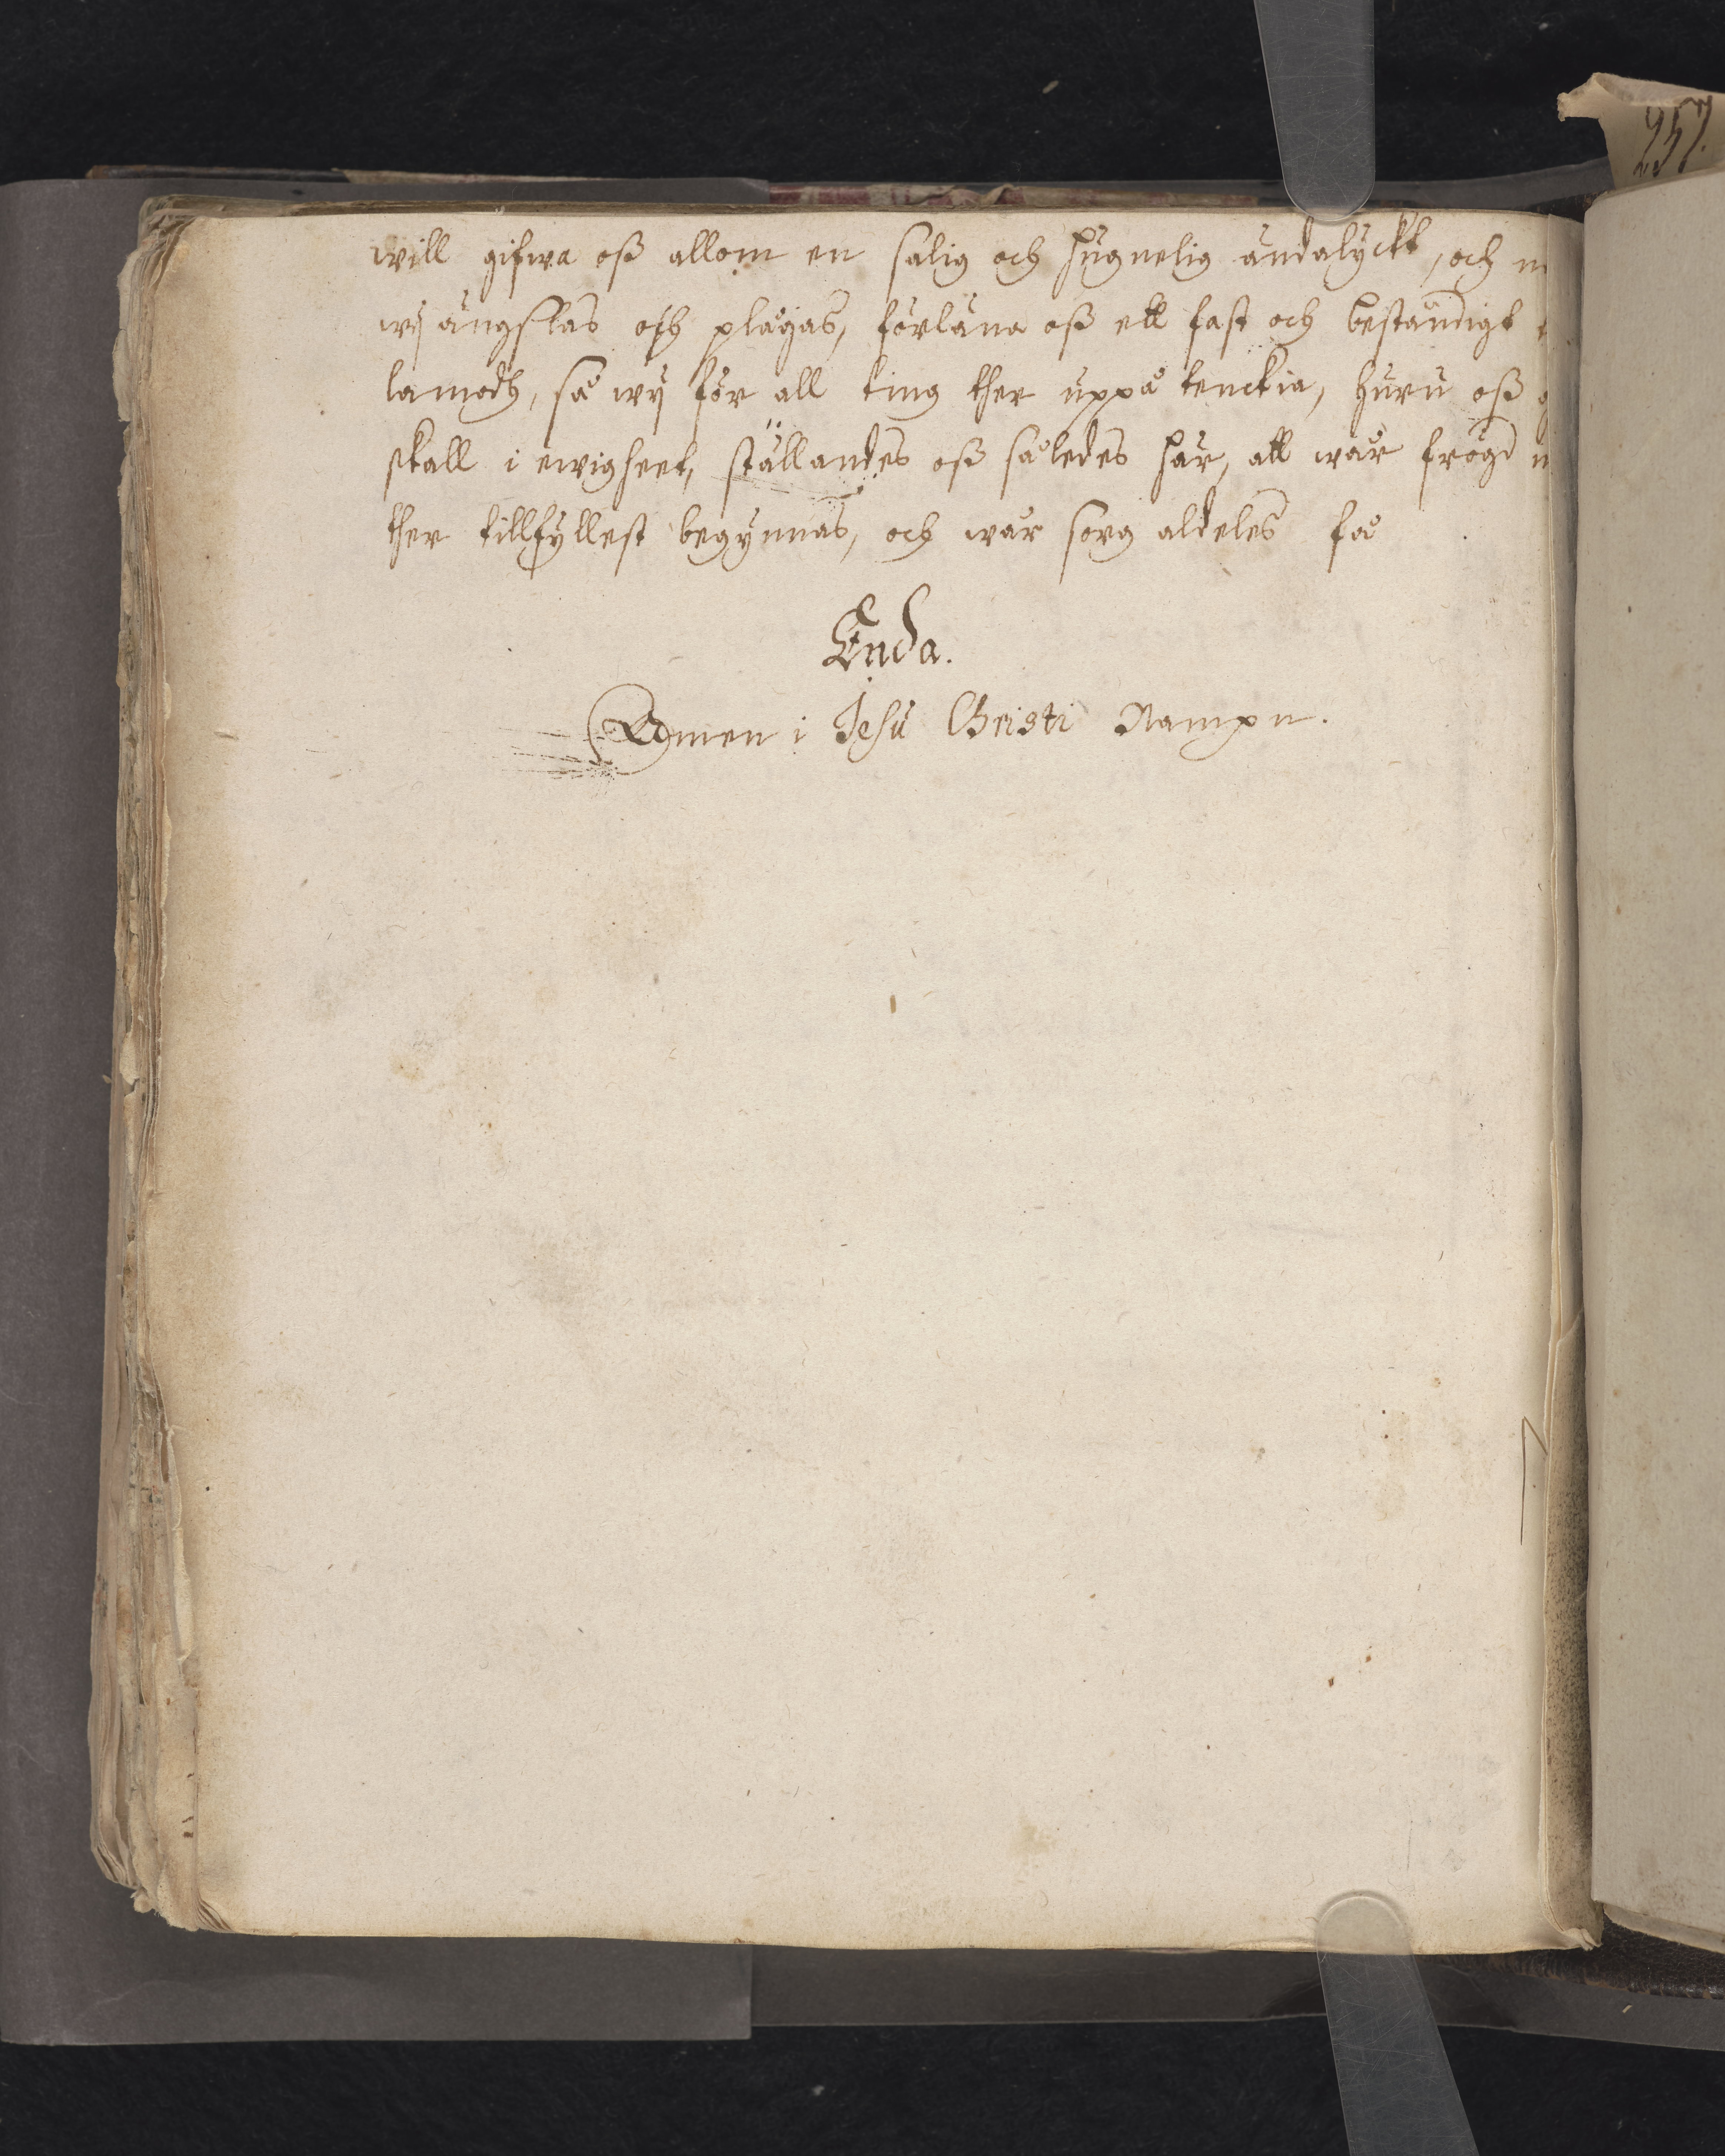 257.
will gifwa oß allom en salig och hugnelig ändalyckt, och
wij ängslas och plågas, förläna oß ett fast och beständigt
lamodh, så wij för all ting ther uppå tenckia, huru oß
skall i ewigheet, ställandes oß således här, att wår frögd
ther tillfyllest begynnas, och wår sorg aldeles få
Enda.
Amen i Jesu Christi Nampn.